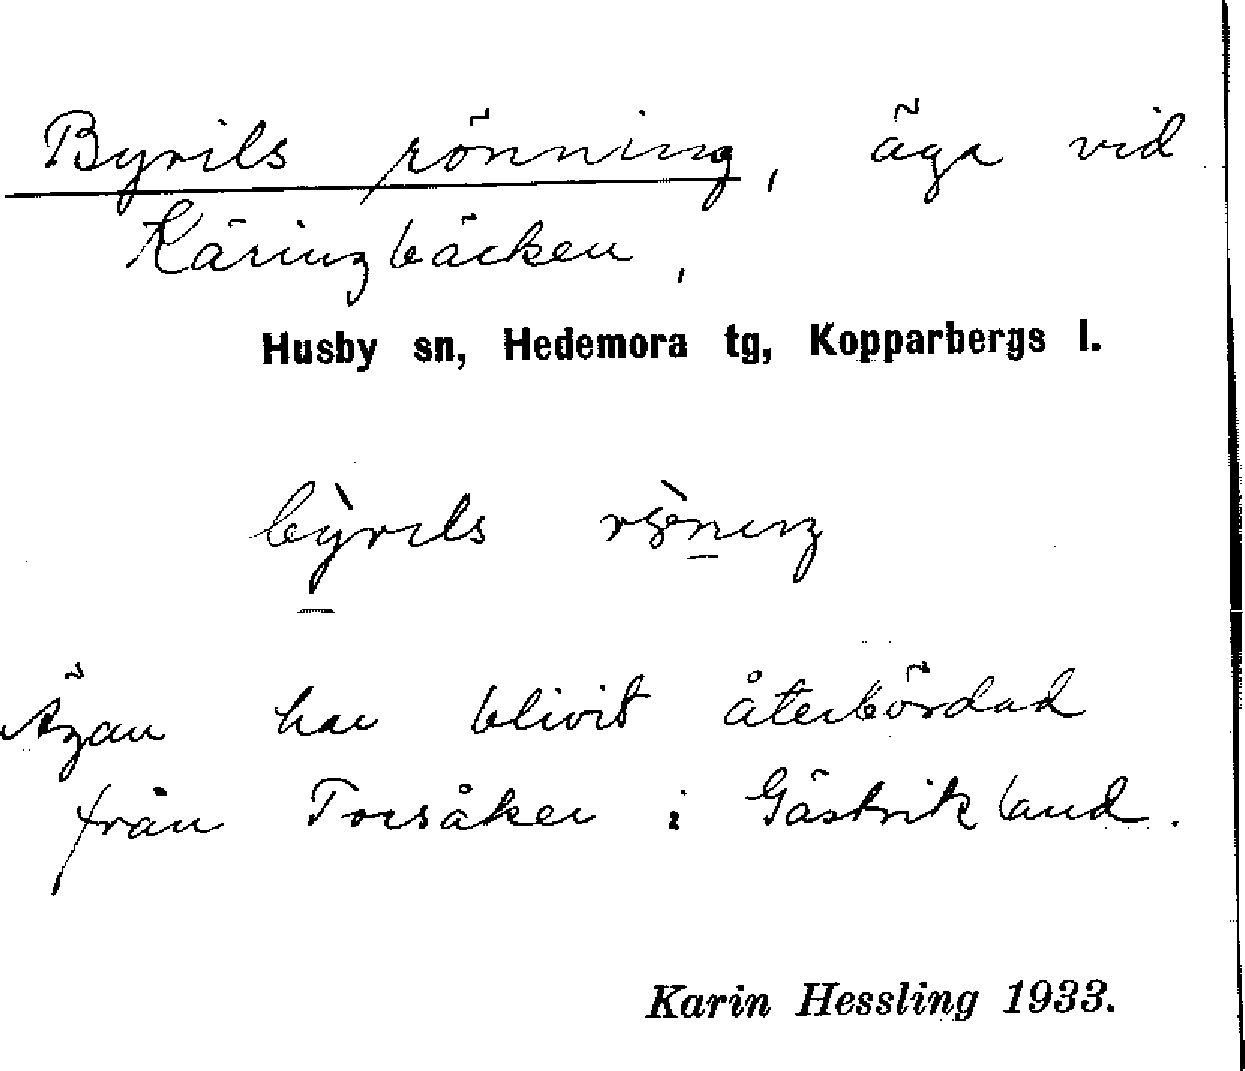 Byrils rönning, äga vid
Käringbäcken,
Husby sn, Hedemora tg, Kopparbergs l.
bỳrils
Ägan har blivit återbördad
från Torsåker i Gästrikland.
Karin Hessling 1933.